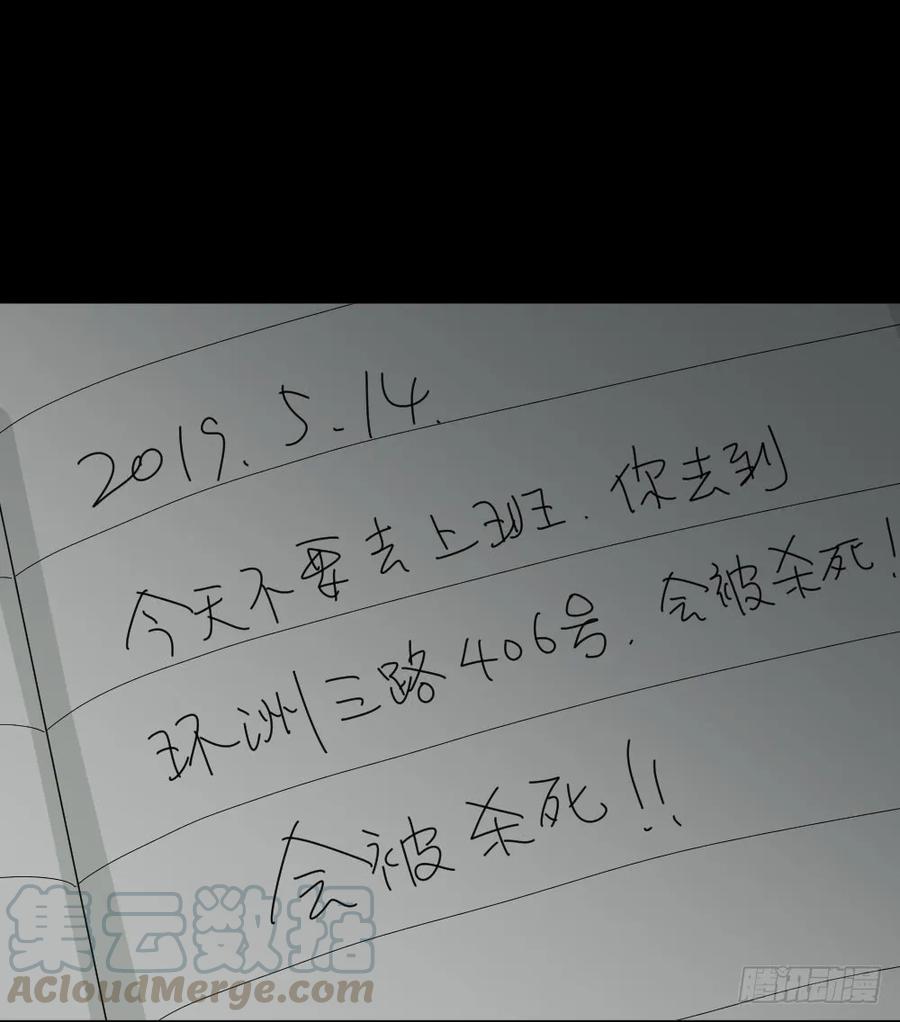 2019.5.14.
今天不要去上班.你去到
环洲三路406号.会被杀死！
会被杀死！！
集云数据
AcloudMerge.com
腾讯动漫